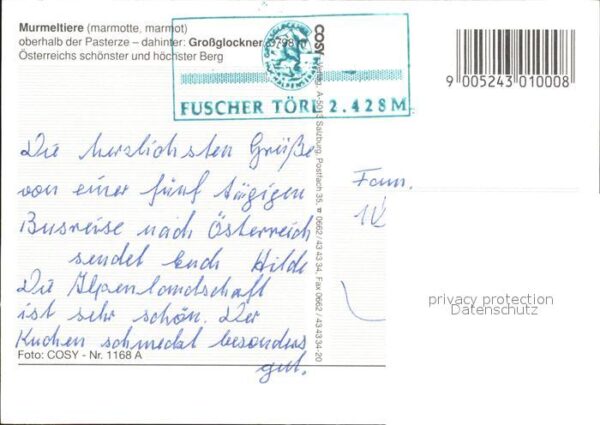 Murmeltiere (marmotte, marmot)
oberhalb der Pasterze – dahinter: Großglockner 3798
Österreichs schönster und höchster Berg
FUSCHER TÖRL 2.428M
9 005243 010008
COSY Verlag, A-5013 Salzburg, Postfach 35, ☎ 0662/43 43 34, Fax 0662/43 43 34-20
Die herzlichsten Grüße
von einer fünf tägigen
Busreise nach Österreich
sendet Euch Hilde
Die Alpenlandschaft
ist sehr schön. Der
Kuchen schmeckt besonders
gut.
Fam.
privacy protection
Datenschutz
Foto: COSY - Nr. 1168 A